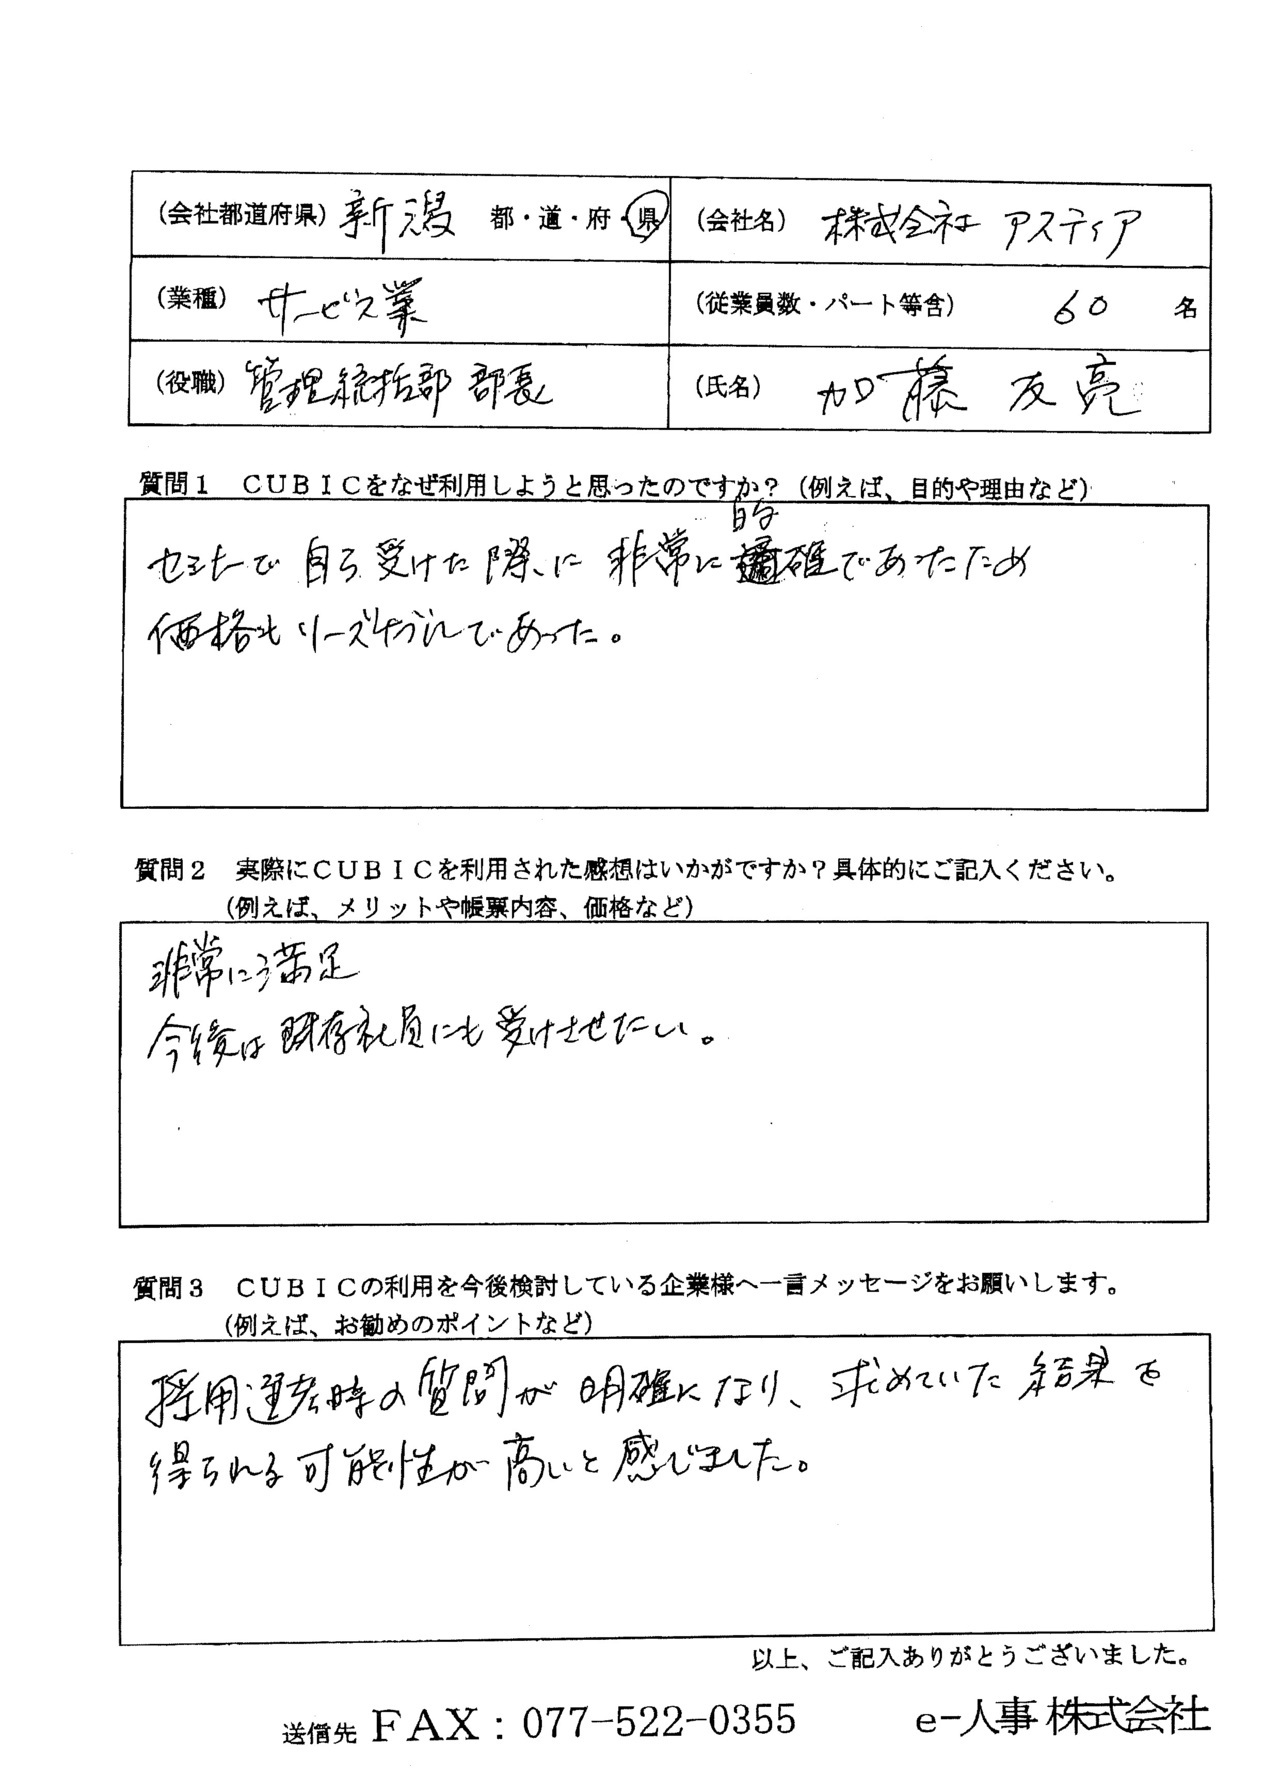 (会社都道府県) 新潟 都・道・府・県 (会社名) 株式会社 アスティア
(業種) サービス業 (従業員数・パート等含) 60 名
(役職) 管理統括部 部長 (氏名) 加藤 友亮
質問1 CUBICをなぜ利用しようと思ったのですか？(例えば、目的や理由など)
セミナーで 自ら 受けた 際に 非常に 的確であったため
価格も リーズナブルであった。
質問2 実際にCUBICを利用された感想はいかがですか？具体的にご記入ください。
(例えば、メリットや帳票内容、価格など)
非常に満足
今後は 既存社員にも 受けさせたい。
質問3 CUBICの利用を今後検討している企業様へ一言メッセージをお願いします。
(例えば、お勧めのポイントなど)
採用選考時の 質問が 明確になり、求めていた 結果を
得られる 可能性が 高いと 感じました。
以上、ご記入ありがとうございました。
送信先 FAX：077-522-0355 e-人事 株式会社